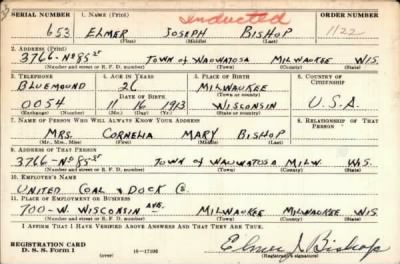 SERIAL NUMBER 1. NAME (Print) inducted ORDER NUMBER
653 ELMER JOSEPH BISHOP 1122
(First) (Middle) (Last)
2. ADDRESS (Print)
3766-NO 85 ST TOWN OF WAUWATOSA MILWAUKEE WIS.
(Number and street or R. F. D. number) (Town) (County) (State)
3. TELEPHONE 4. AGE IN YEARS 5. PLACE OF BIRTH 6. COUNTRY OF CITIZENSHIP
BLUEMOUND 26 MILWAUKEE
DATE OF BIRTH (Town or county)
0054 11 16 1913 WISCONSIN U.S.A.
(Exchange) (Number) (Mo.) (Day) (Yr.) (State or country)
7. NAME OF PERSON WHO WILL ALWAYS KNOW YOUR ADDRESS 8. RELATIONSHIP OF THAT PERSON
MRS. CORNELIA MARY BISHOP
(Mr., Mrs., Miss) (First) (Middle) (Last)
9. ADDRESS OF THAT PERSON
3766-NO 85-ST TOWN OF WAUWATOSA MILW. WIS.
(Number and street or R. F. D. number) (Town) (County) (State)
10. EMPLOYER'S NAME
UNITED COAL & DOCK CO.
11. PLACE OF EMPLOYMENT OR BUSINESS
700-W. WISCONSIN AVE. MILWAUKEE MILWAUKEE WIS.
(Number and street or R. F. D. number) (Town) (County) (State)
I AFFIRM THAT I HAVE VERIFIED ABOVE ANSWERS AND THAT THEY ARE TRUE.
REGISTRATION CARD
D. S. S. Form 1 (over) 16-17105 Elmer J. Bishop
(Registrant's signature)